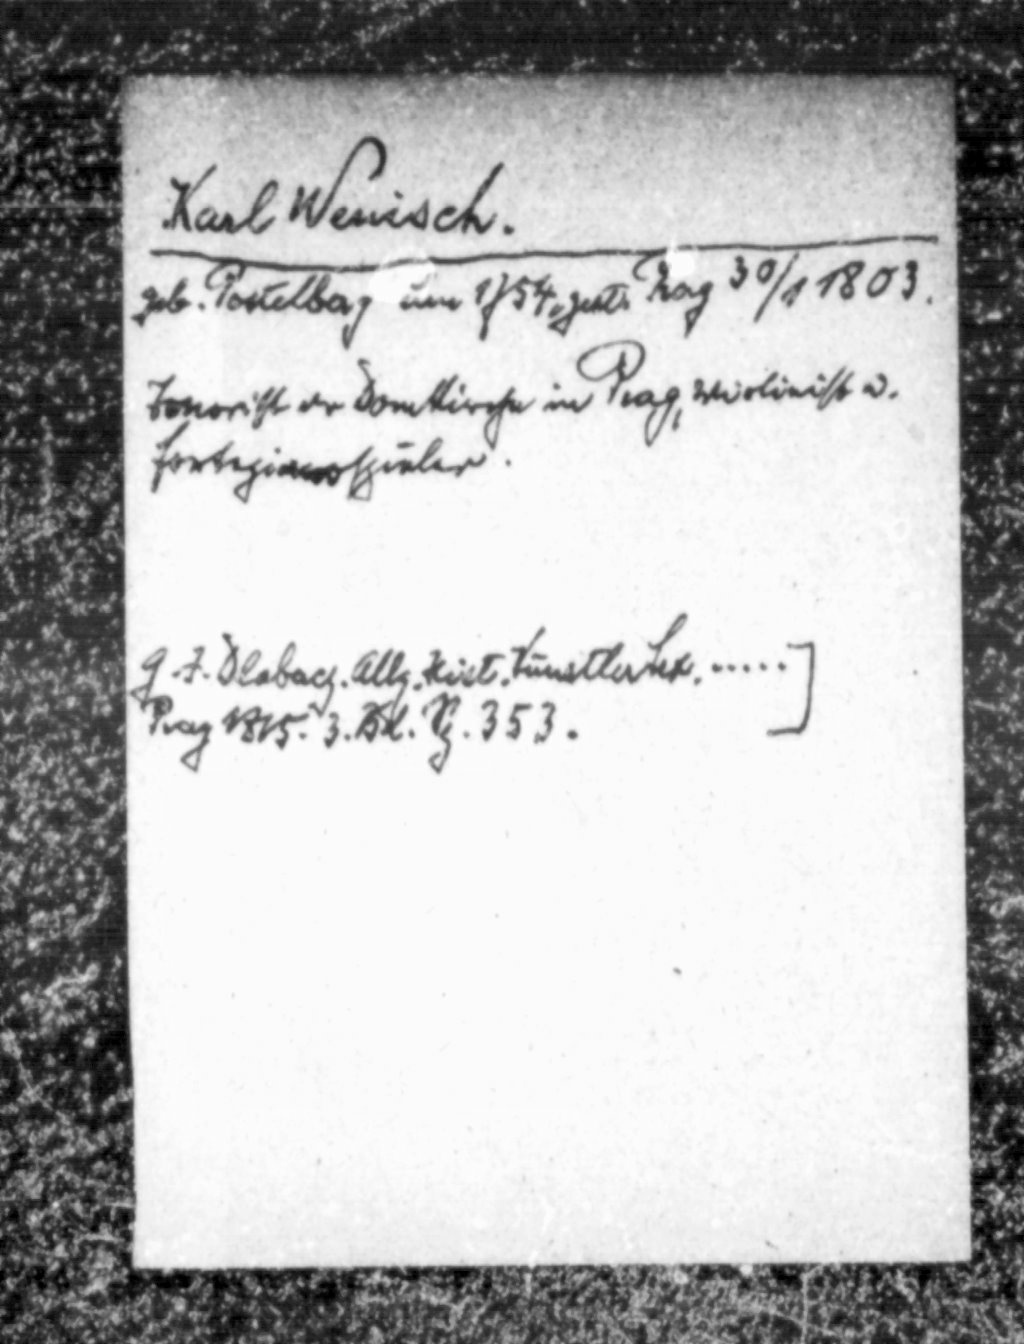 Karl Wenisch.
geb. Postelberg um 1754, gest. Prag 30/1 1803.
Tenorist der Domkirche in Prag, Violinist u.
Fortepianospieler.
G. J. Dlabacz. Allg. hist. Künstler Lex. .....]
Prag 1815. 3. Bd. Pg. 353.